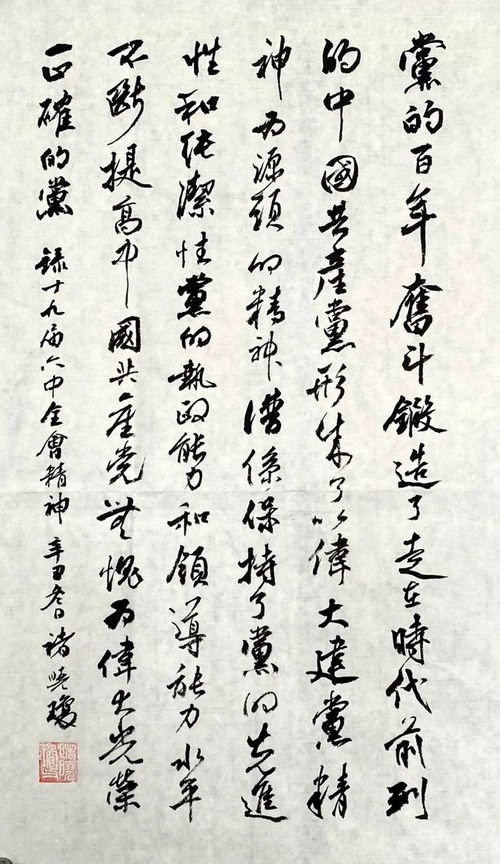 黨的百年奮斗鍛造了走在時代前列
的中國共產黨形成了以偉大建黨精
神为源頭的精神譜係保持了黨的先進
性和純潔性黨的執政能力和領導能力水平
不斷提高中國共產党無愧为偉大光榮
正確的黨 錄十九届六中全會精神 辛丑 曉瓊